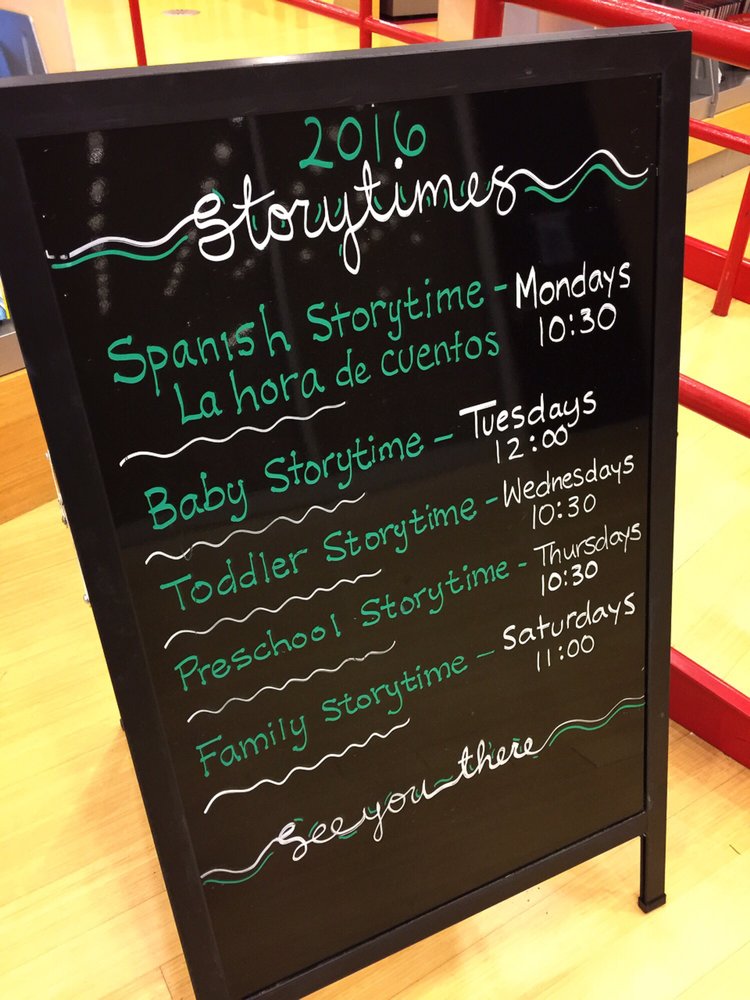 2016
Storytimes
Spanish Storytime - Mondays
La hora de cuentos 10:30
Baby Storytime - Tuesdays
12:00
Toddler Storytime - Wednesdays
10:30
Preschool Storytime - Thursdays
10:30
Family Storytime - Saturdays
11:00
See you there